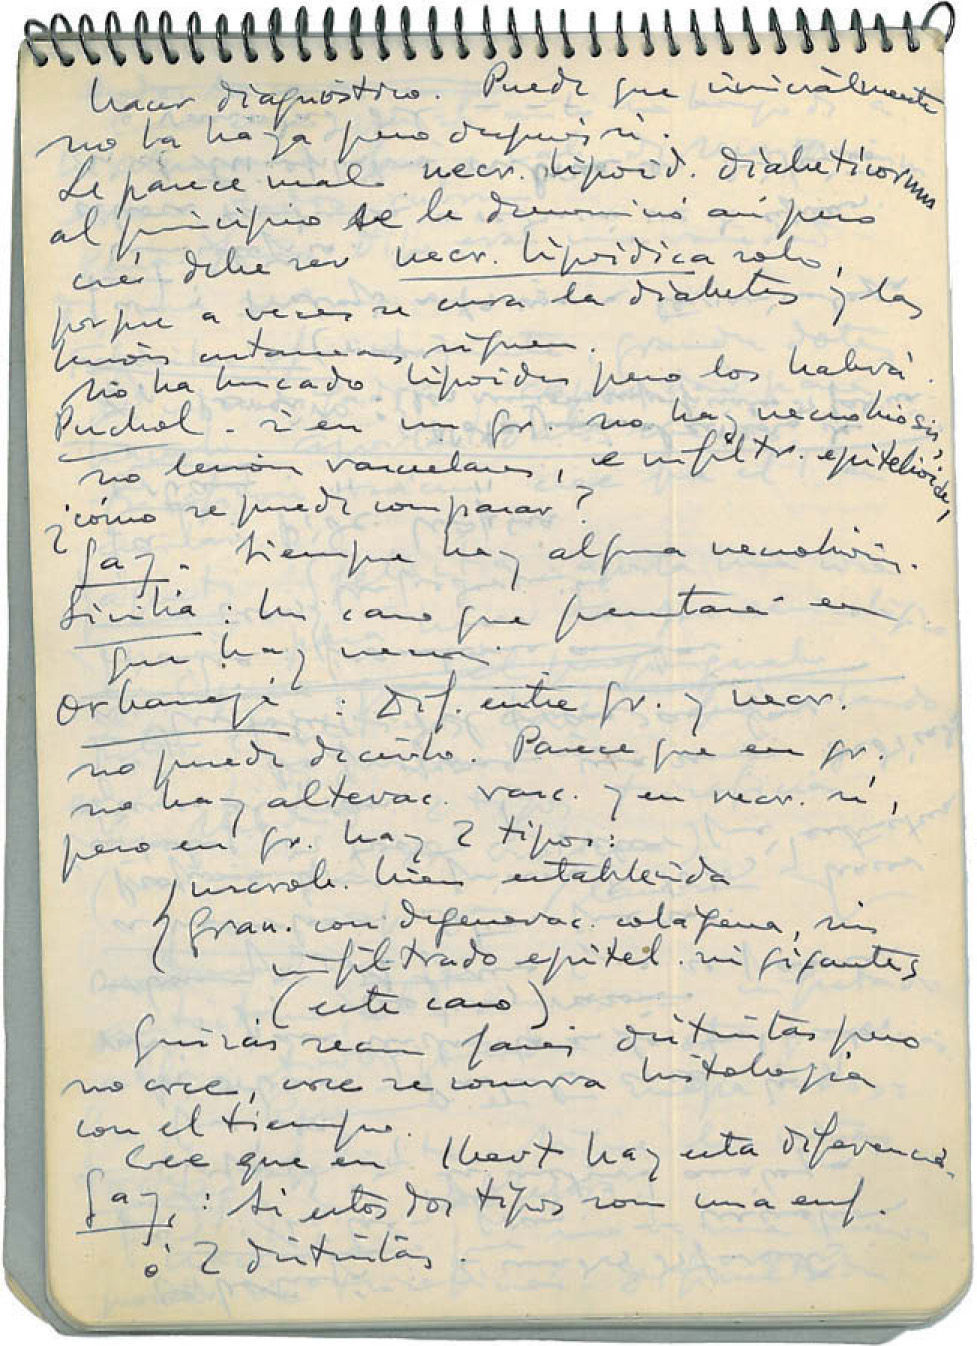 hacer diagnóstico. Puede que inicialmente
no la haya pero después sí.
Le parece mal necr. lipoid. diabeticorum
al principio se le denominó así pero
cree debe ser necr. lipoidica solo,
porque a veces se cura la diabetes y las
lesiones cutaneas siguen.
No ha buscado lipoides pero los habrá.
Puchol - si en un gr. no hay necrobiosis,
no lesión vasculares, e infiltr. epitelioide,
¿cómo se puede comparar?
Gay. Siempre hay alguna necrobiosis.
Sicilia: Un caso que presentará en
que hay
Orbaneja: Dif. entre gr. y necr.
no puede decirlo. Parece que en gr.
no hay alterac. vasc. y en necr. sí,
pero en gr. hay 2 tipos:
necrob. bien establecida
gran. con degenerac. colágena, sin
infiltrado epitel. ni gigantes
(este caso)
Quizás sean fases distintas pero
no cree, cree se conserva histología
con el tiempo.
Cree que en hay esta diferencia.
Gay: Si estos dos tipos son una enf.
ó 2 distintas.